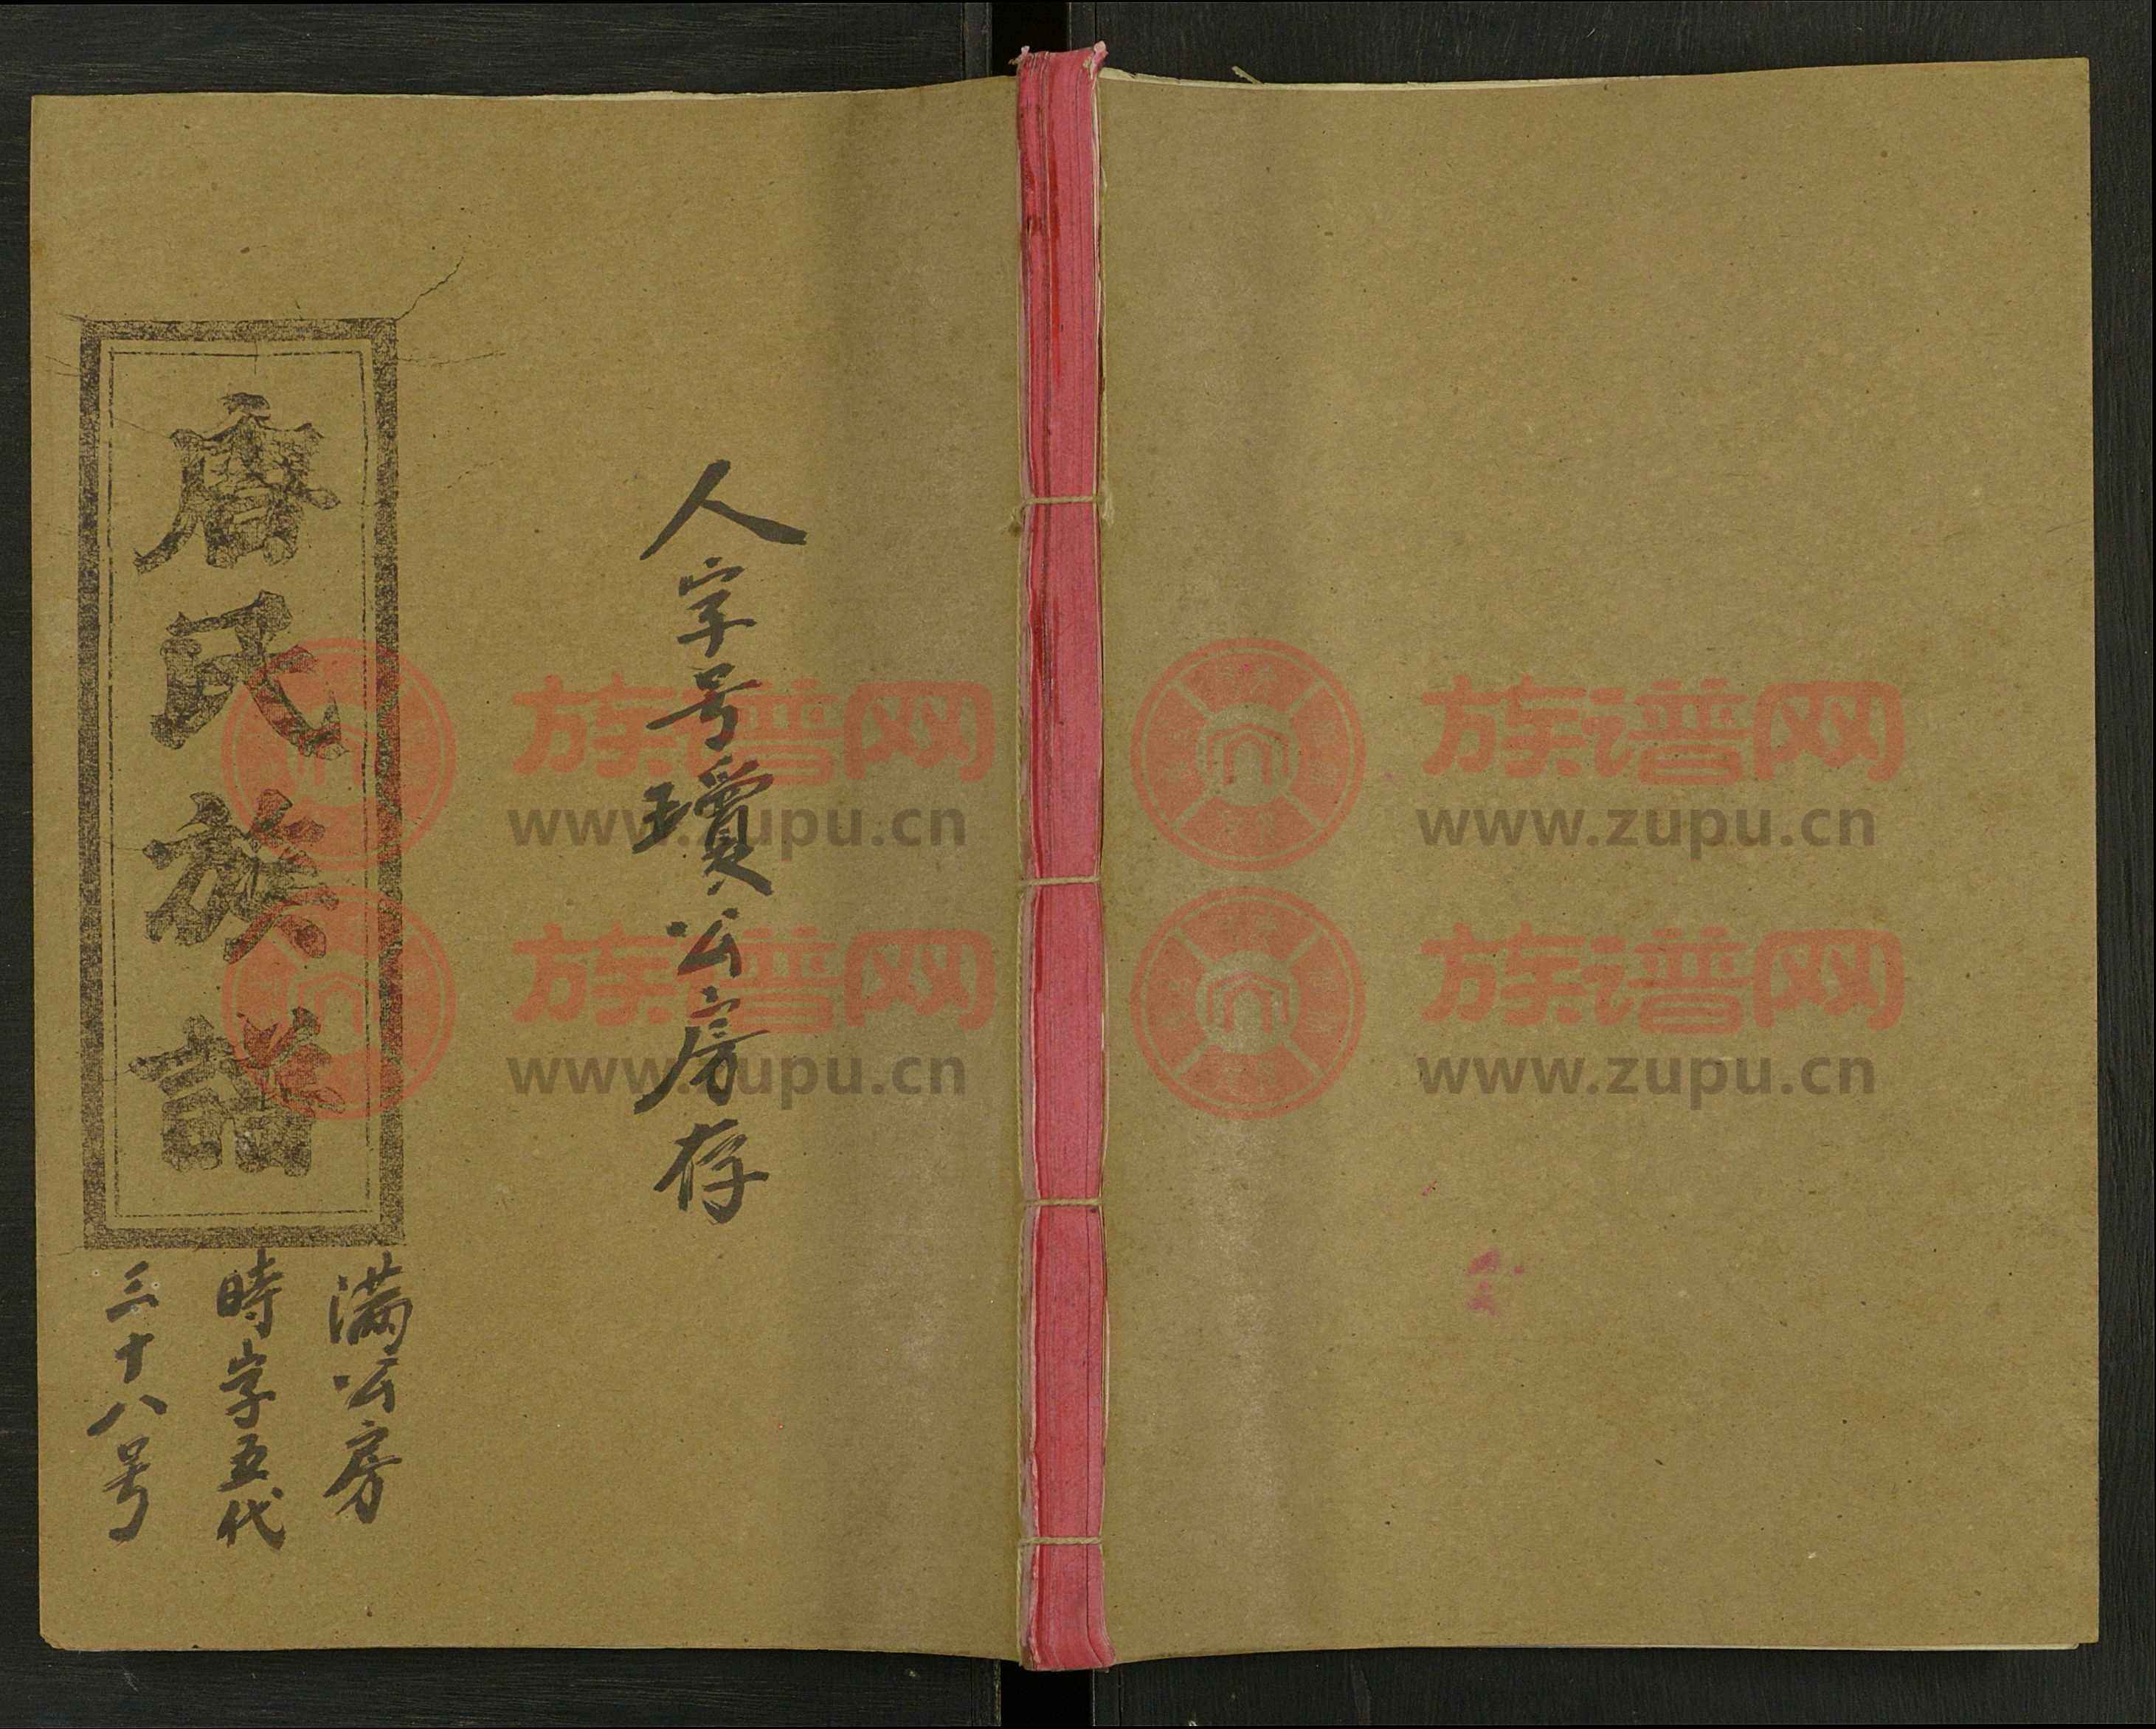 人字号瓚公房存
唐氏族譜
满公房
時字五代
三十八号
族谱网
www.zupu.cn
族谱网
www.zupu.cn
族谱网
www.zupu.cn
族谱网
www.zupu.cn